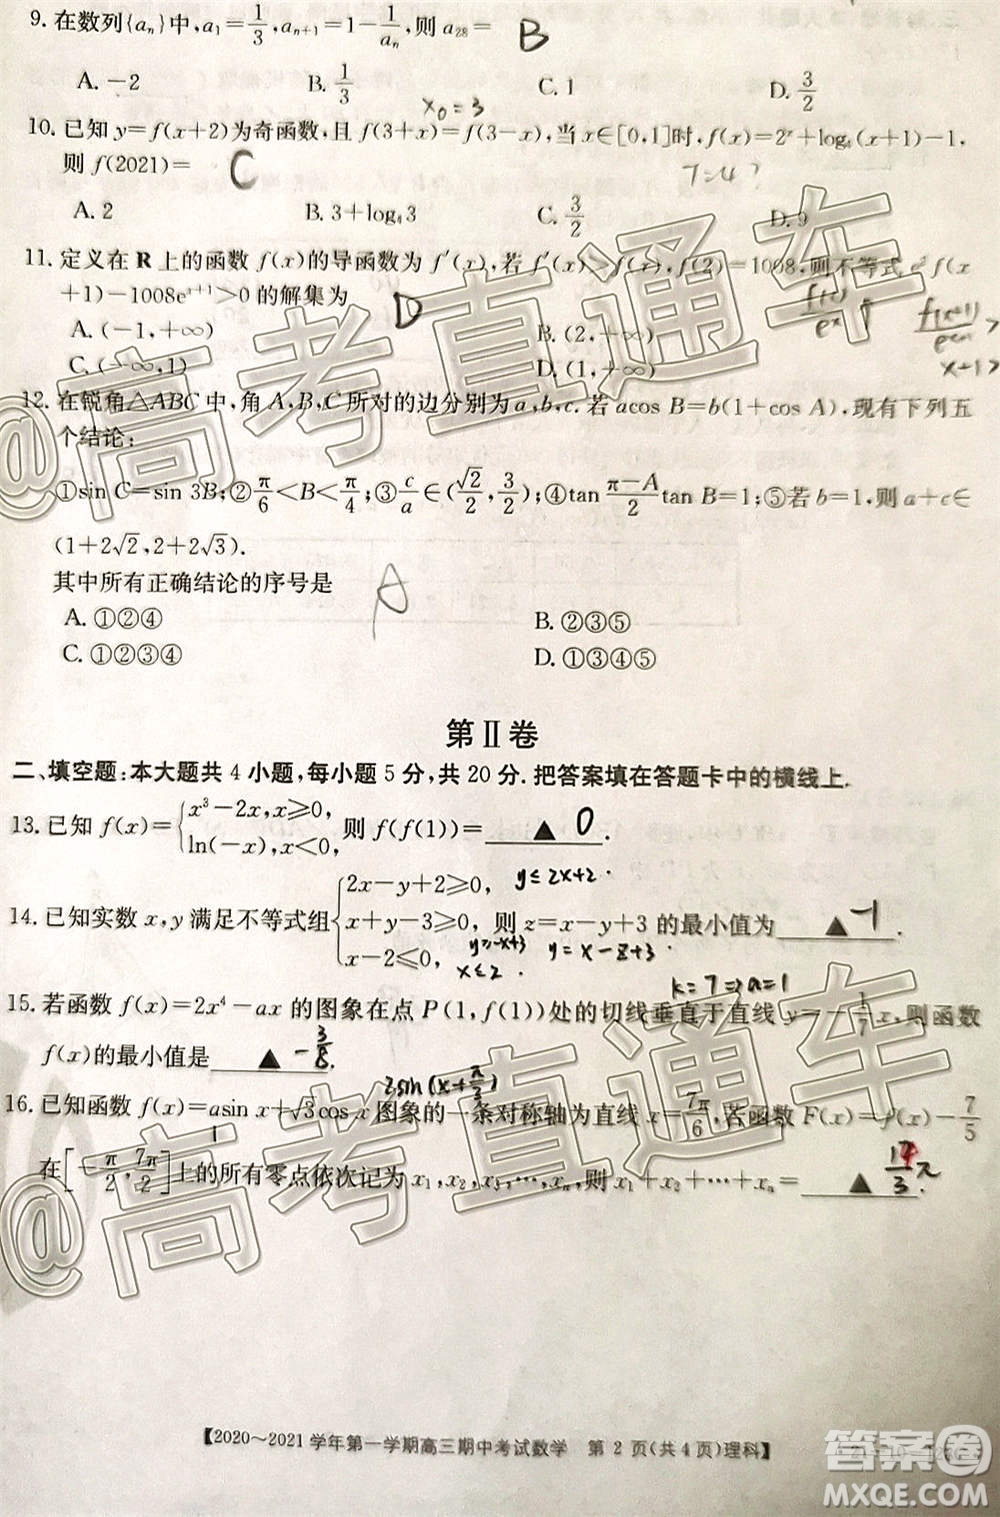 9. 在数列{aₙ}中,a₁=1/3,aₙ₊₁=1-1/aₙ,则 a₂₈= B
A. -2 B. 1/3 C. 1 D. 3/2
x₀=3
10. 已知 y=f(x+2)为奇函数,且 f(3+x)=f(3-x),当 x∈[0,1]时,f(x)=2ˣ+log₄(x+1)-1,
则 f(2021)= C T=4?
A. 2 B. 3+log₄3 C. 3/2 D. 9
11. 定义在 R 上的函数 f(x)的导函数为 f′(x),若 f′(x)>f(x),f(2)=1008,则不等式 e²f(x
+1)-1008eˣ⁺¹>0 的解集为 D
A. (-1,+∞) B. (2,+∞)
C. (-∞,1) D. (1,+∞)
x+1>
12. 在锐角△ABC 中,角 A,B,C 所对的边分别为 a,b,c. 若 acos B=b(1+cos A),现有下列五
个结论:
①sin C=sin 3B;②π/6<B<π/4;③c/a∈(√2/2,3/2);④tan (π-A)/2 tan B=1;⑤若 b=1,则 a+c∈
(1+2√2,2+2√3).
其中所有正确结论的序号是 A
A. ①②④ B. ②③⑤
C. ①②③④ D. ①②③④⑤
第Ⅱ卷
二、填空题:本大题共 4 小题,每小题 5 分,共 20 分. 把答案填在答题卡中的横线上.
13. 已知 f(x)={x³-2x,x≥0, ln(-x),x<0, 则 f(f(1))= ▲ 0 .
y≤2x+2
14. 已知实数 x,y 满足不等式组{2x-y+2≥0, x+y-3≥0, x-2≤0, 则 z=x-y+3 的最小值为 ▲ -1 .
y≥-x+3 y=x-z+3
x≤2
k=7⇒a=1
15. 若函数 f(x)=2x⁴-ax 的图象在点 P(1,f(1))处的切线垂直于直线 y=-1/7 x,则函数
f(x)的最小值是 ▲ -3/8 .
2sin(x+π/3)
16. 已知函数 f(x)=asin x+√3cos x 图象的一条对称轴为直线 x=7π/6,若函数 F(x)=f(x)-7/5
在[-π/2,7π/2]上的所有零点依次记为 x₁,x₂,x₃,…,xₙ,则 x₁+x₂+…+xₙ= ▲
【2020~2021 学年第一学期高三期中考试数学 第 2 页(共 4 页)理科】
@高考直通车
@高考直通车
答案圈
MXQE.COM